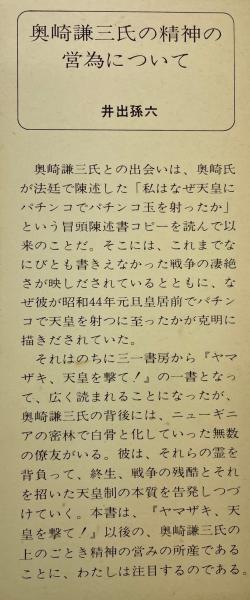 奥崎謙三氏の精神の
営為について
井出孫六
奥崎謙三氏との出会いは、奥崎氏
が法廷で陳述した「私はなぜ天皇に
パチンコでパチンコ玉を射ったか」
という冒頭陳述書コピーを読んで以
来のことだ。そこには、これまでな
にびとも書きえなかった戦争の凄絶
さが映しだされているとともに、な
ぜ彼が昭和44年元旦皇居前でパチン
コで天皇を射つに至ったかが克明に
描きだされていた。
それはのちに三一書房から『ヤマ
ザキ、天皇を撃て!』の一書となっ
て、広く読まれることになったが、
奥崎謙三氏の背後には、ニューギニ
アの密林で白骨と化していった無数
の僚友がいる。彼は、それらの霊を
背負って、終生、戦争の残酷とそれ
を招いた天皇制の本質を告発しつづ
けていく。本書は、『ヤマザキ、天
皇を撃て!』以後の、奥崎謙三氏の
上のごとき精神の営みの所産である
ことに、わたしは注目するのである。